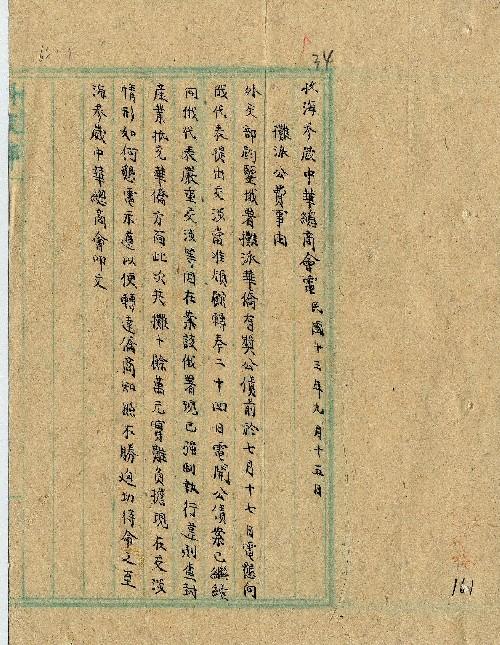 34
收海參崴中華總商會電 民國十三年九月十五日
攤派公費事由
外交部鈞鑒域署攤派華僑有獎公債前於七月十七日電懇向
俄代表提出交涉當准領館轉奉二十四日電開公債案已繼續
向俄代表嚴重交涉等因在案該俄署現已強制執行違則查封
產業抵充華僑方面此次共攤十餘萬元實難負擔現在交涉
情形如何懇電示遵以便轉達僑商知照不勝迫切待命之至
海參崴中華總商會叩文
161